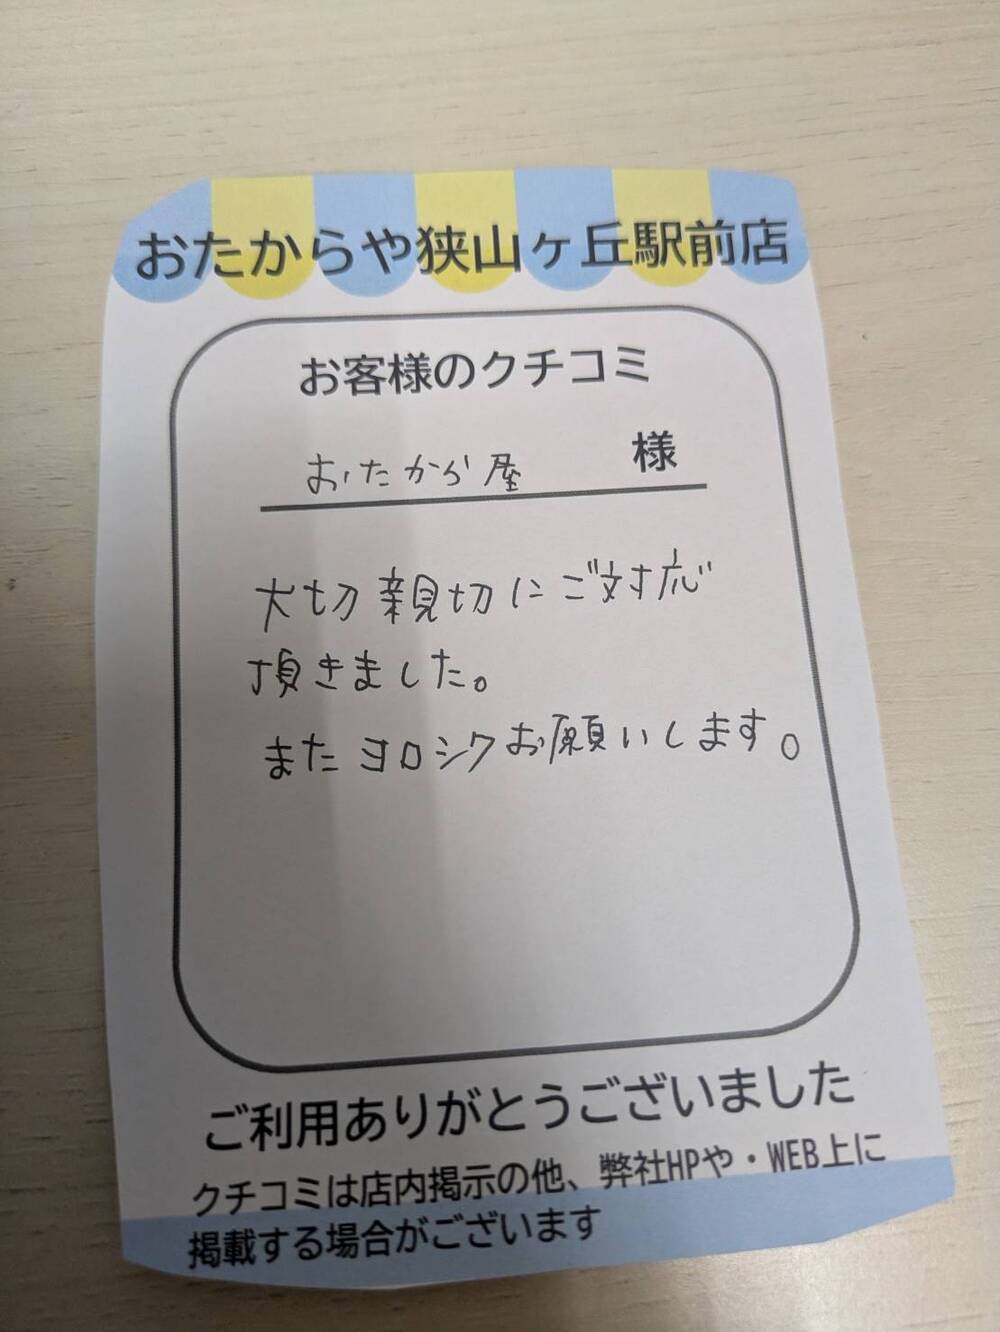 おたからや狭山ヶ丘駅前店
お客様のクチコミ
おたから屋 様
大切親切にご対応
頂きました。
またヨロシクお願いします。
ご利用ありがとうございました
クチコミは店内掲示の他、弊社HPや・WEB上に
掲載する場合がございます